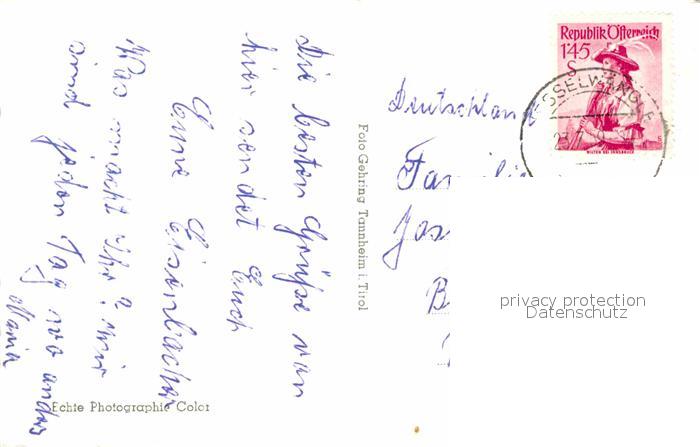 Die besten Grüße von
hier sendet Euch
Eure Eisenbacher
Was macht Ihr? wir
sind jeden Tag wo anders
Maria
Echte Photographie Color
Foto Gehring Tannheim i. Tirol
Republik Österreich
1·45
S
WILTEN BEI INNSBRUCK
Deutschland
Familie
privacy protection
Datenschutz